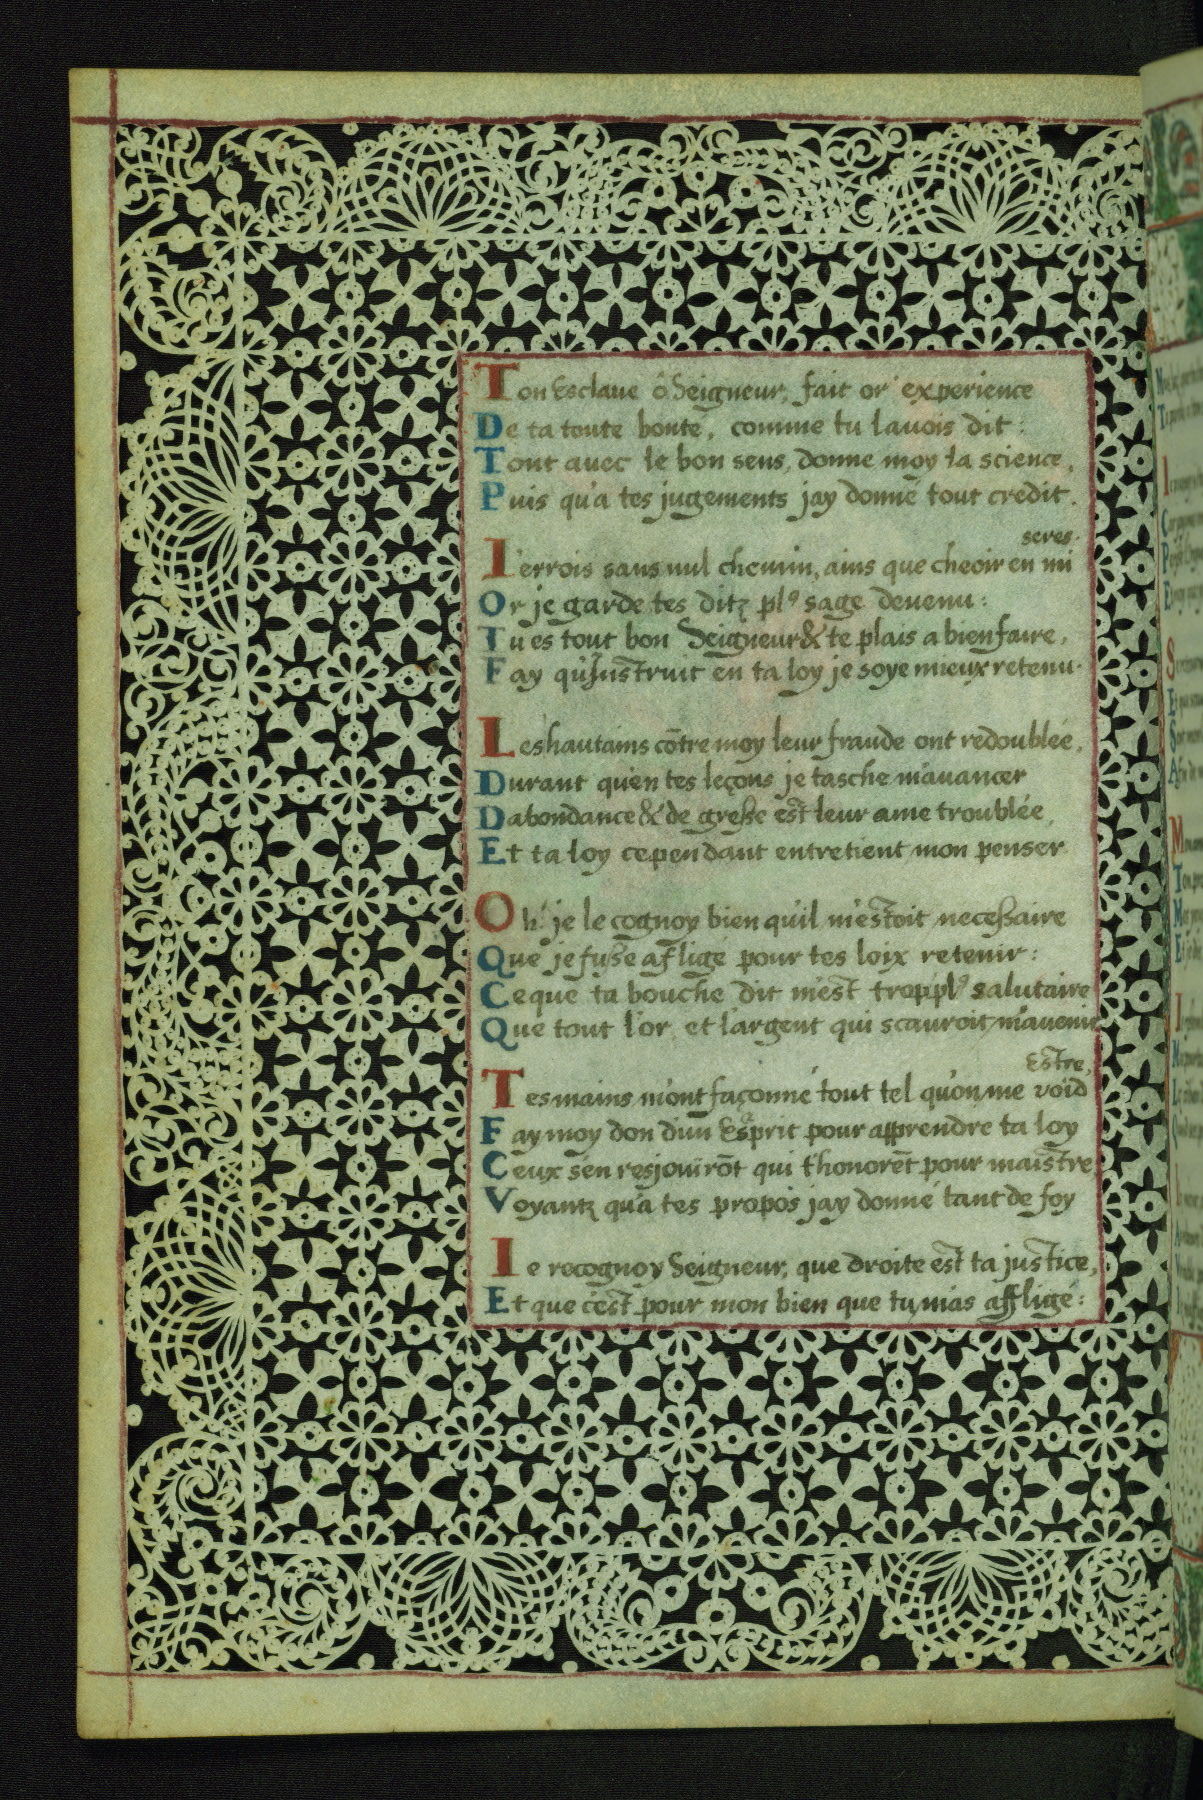 Ton Esclave ô Seigneur, fait or' experience
De ta toute bonté, comme tu lavois dit:
Tout avec le bon sens, donne moy ta science,
Puis qu'a tes jugements jay donné tout credit.
seres.
I'errois sans nul chemin, ains que cheoir en mi
Or je garde tes ditz plꝰ sage devenu:
Tu es tout bon Seigneur & te plais a bien faire,
Fay qu'Instruit en ta loy je soye mieux retenu.
Les hautains cõtre moy leur fraude ont redoublée,
Durant qu'en tes leçons je tasche m'avancer
Dabondance & de gresse est leur ame troublée,
Et ta loy cependant entretient mon penser
Oh! je le cognoy bien qu'il m'estoit necessaire
Que je fusse affligé pour tes loix retenir:
Ce que ta bouche dit m'est trop plꝰ salutaire
Que tout l'or, et l'argent qui scauroit m'avenir
Estre,
Tes mains m'ont façonné tout tel qu'on me void
Fay moy don dun Esprit pour apprendre ta loy
Ceux s'en resjouirõt qui t'honorẽt pour maistre
Voyantz qu'a tes propos jay donné tant de foy
Ie recognoy Seigneur, que droite est ta justice,
Et que c'est pour mon bien que tu mas affligé: